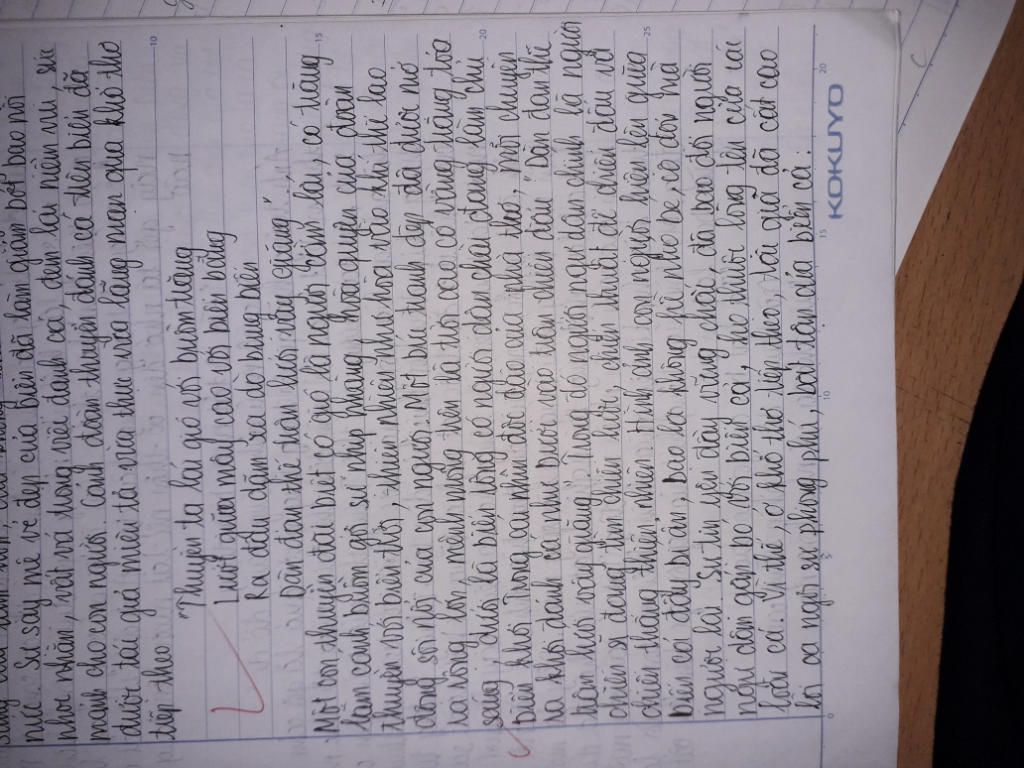 nức. Sự say mê vẻ đẹp của biển đã làm giảm bớt bao nỗi
nhọc nhằn, vất vả trong việc đánh cá, đem lại niềm vui, sức
mạnh cho con người. Cảnh đoàn thuyền đánh cá trên biển đã
được tác giả miêu tả vừa thực vừa lãng mạn qua khổ thơ
tiếp theo:
"Thuyền ta lái gió với buồm trăng
Lướt giữa mây cao với biển bằng
Ra đậu dặm xa dò bụng biển
Dàn đan thế trận lưới vây giăng".
Một con thuyền đặc biệt có gió là người cầm lái, có trăng
làm cánh buồm gợi sự nhịp nhàng, hòa quyện của đoàn
thuyền với biển trời, thiên nhiên như hòa vào khí thế lao
động sôi nổi của con người. Một bức tranh đẹp đã được mở
ra rộng lớn mênh mông trên là trời cao có vầng trăng tỏa
sáng, dưới là biển rộng có người dân chài đang làm chủ
biển khơi. Trong con nhìn độc đáo của nhà thơ, mỗi chuyến
ra khơi đánh cá như bước vào trận chiến đấu "Dàn đan thế
trận lưới vây giăng". Trong đó người ngư dân chính là người
chiến sĩ đang tìm chiến lược, chiến thuật để chiến đấu và
chiến thắng thiên nhiên. Hình ảnh con người hiện lên giữa
biển cả đầy bí ẩn, bao la không hề nhỏ bé, lẻ loi mà
ngược lại. Sự tin yêu đầy vững chãi, đó bao đời người
ngư dân gắn bó với biển cả, họ thuộc lòng tên của các
loài cá. Vì thế ở khổ thơ tiếp theo, tác giả đã cất cao
lời ca ngợi sự phong phú, bất tận của biển cả:
KOKUYO